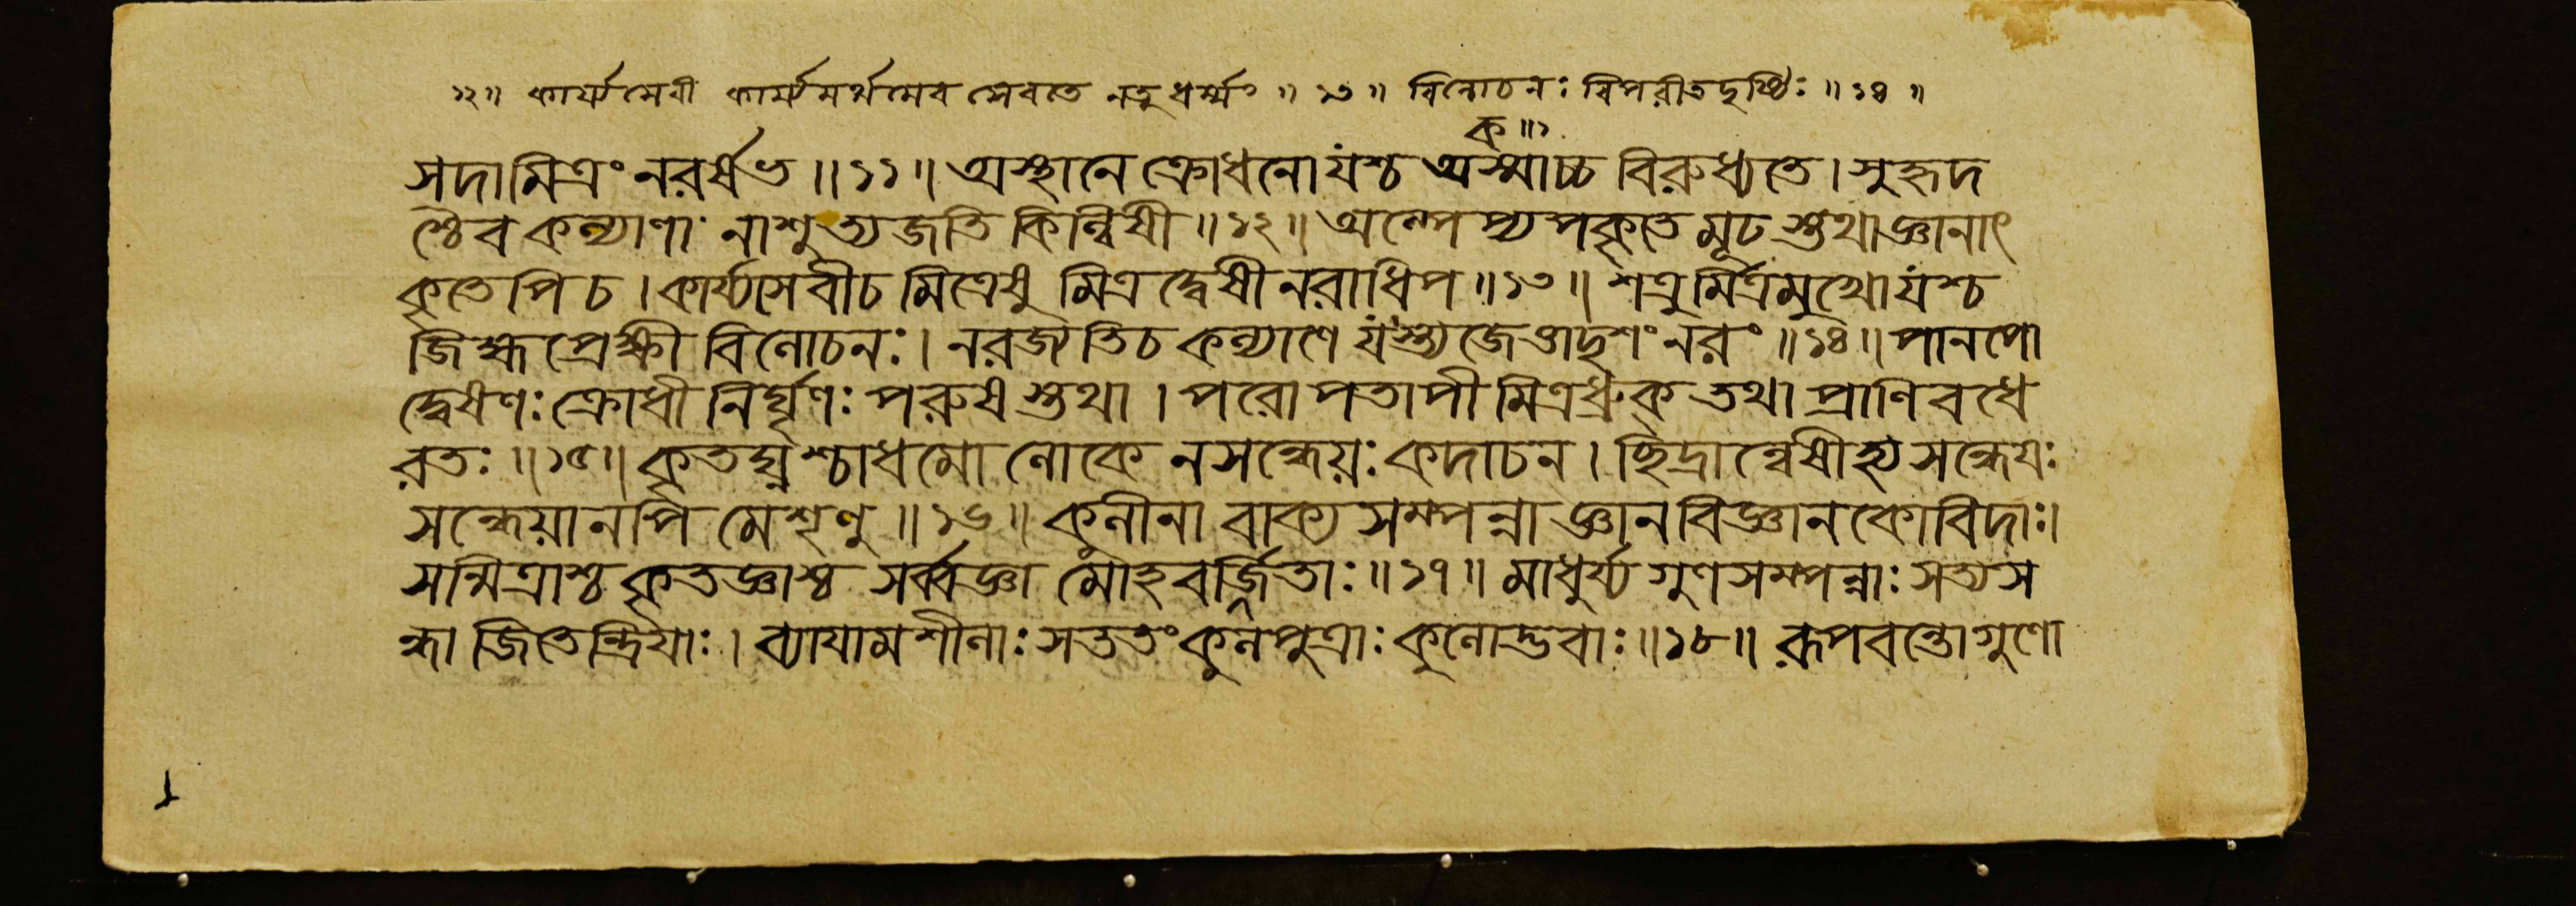 ১২॥ কার্য্যসেবী কার্য্যমর্থমেব সেবতে নতু ধর্ম্মং ॥ ১৩ ॥ বিলোচনঃ বিপরীতদৃষ্টিঃ ॥ ১৪ ॥
ক ॥ ১
সদামিত্রং নরর্ষভ ॥ ১১ ॥ অস্থানে ক্রোধনোযশ্চ অস্মাচ্চ বিরুধ্যতে । সুহৃদ
শ্চৈব কল্যাণা নাশুত্যজতি কিল্বিষী ॥ ১২ ॥ অল্পেপ্যপকৃতে মূঢস্তথাজ্ঞানাৎ
কৃতেপি চ । কার্য্যসেবীচ মিত্রেষু মিত্রদ্বেষী নরাধিপ ॥ ১৩ ॥ শত্রুর্মিত্রমুখোযশ্চ
জিহ্মপ্রেক্ষী বিলোচনঃ । নরজ্যতিচ কল্যাণে যস্ত্যজেত্তাদৃশং নরং ॥ ১৪ ॥ পানপো
দ্বেষণঃ ক্রোধী নির্ঘৃণঃ পরুষস্তথা । পরোপতাপী মিত্রধ্রুক্ তথা প্রাণিবধে
রতঃ ॥ ১৫ ॥ কৃতঘ্নশ্চাধমো লোকে নসন্ধেয়ঃ কদাচন । ছিদ্রান্বেষী হ্যসন্ধেযঃ
সন্ধেয়ানপি মেশৃণু ॥ ১৬ ॥ কুলীনা বাক্যসম্পন্না জ্ঞানবিজ্ঞানকোবিদাঃ।
সন্মিত্রাশ্চ কৃতজ্ঞাশ্চ সর্ব্বজ্ঞা মোহবর্জ্জিতাঃ ॥ ১৭ ॥ মাধুর্য্যগুণসম্পন্নাঃ সত্যস
ন্ধা জিতেন্দ্রিযাঃ । ব্যাযামশীলাঃ সততং কুলপুত্রাঃ কুলোদ্ভবাঃ ॥ ১৮ ॥ রূপবন্তোগুণো